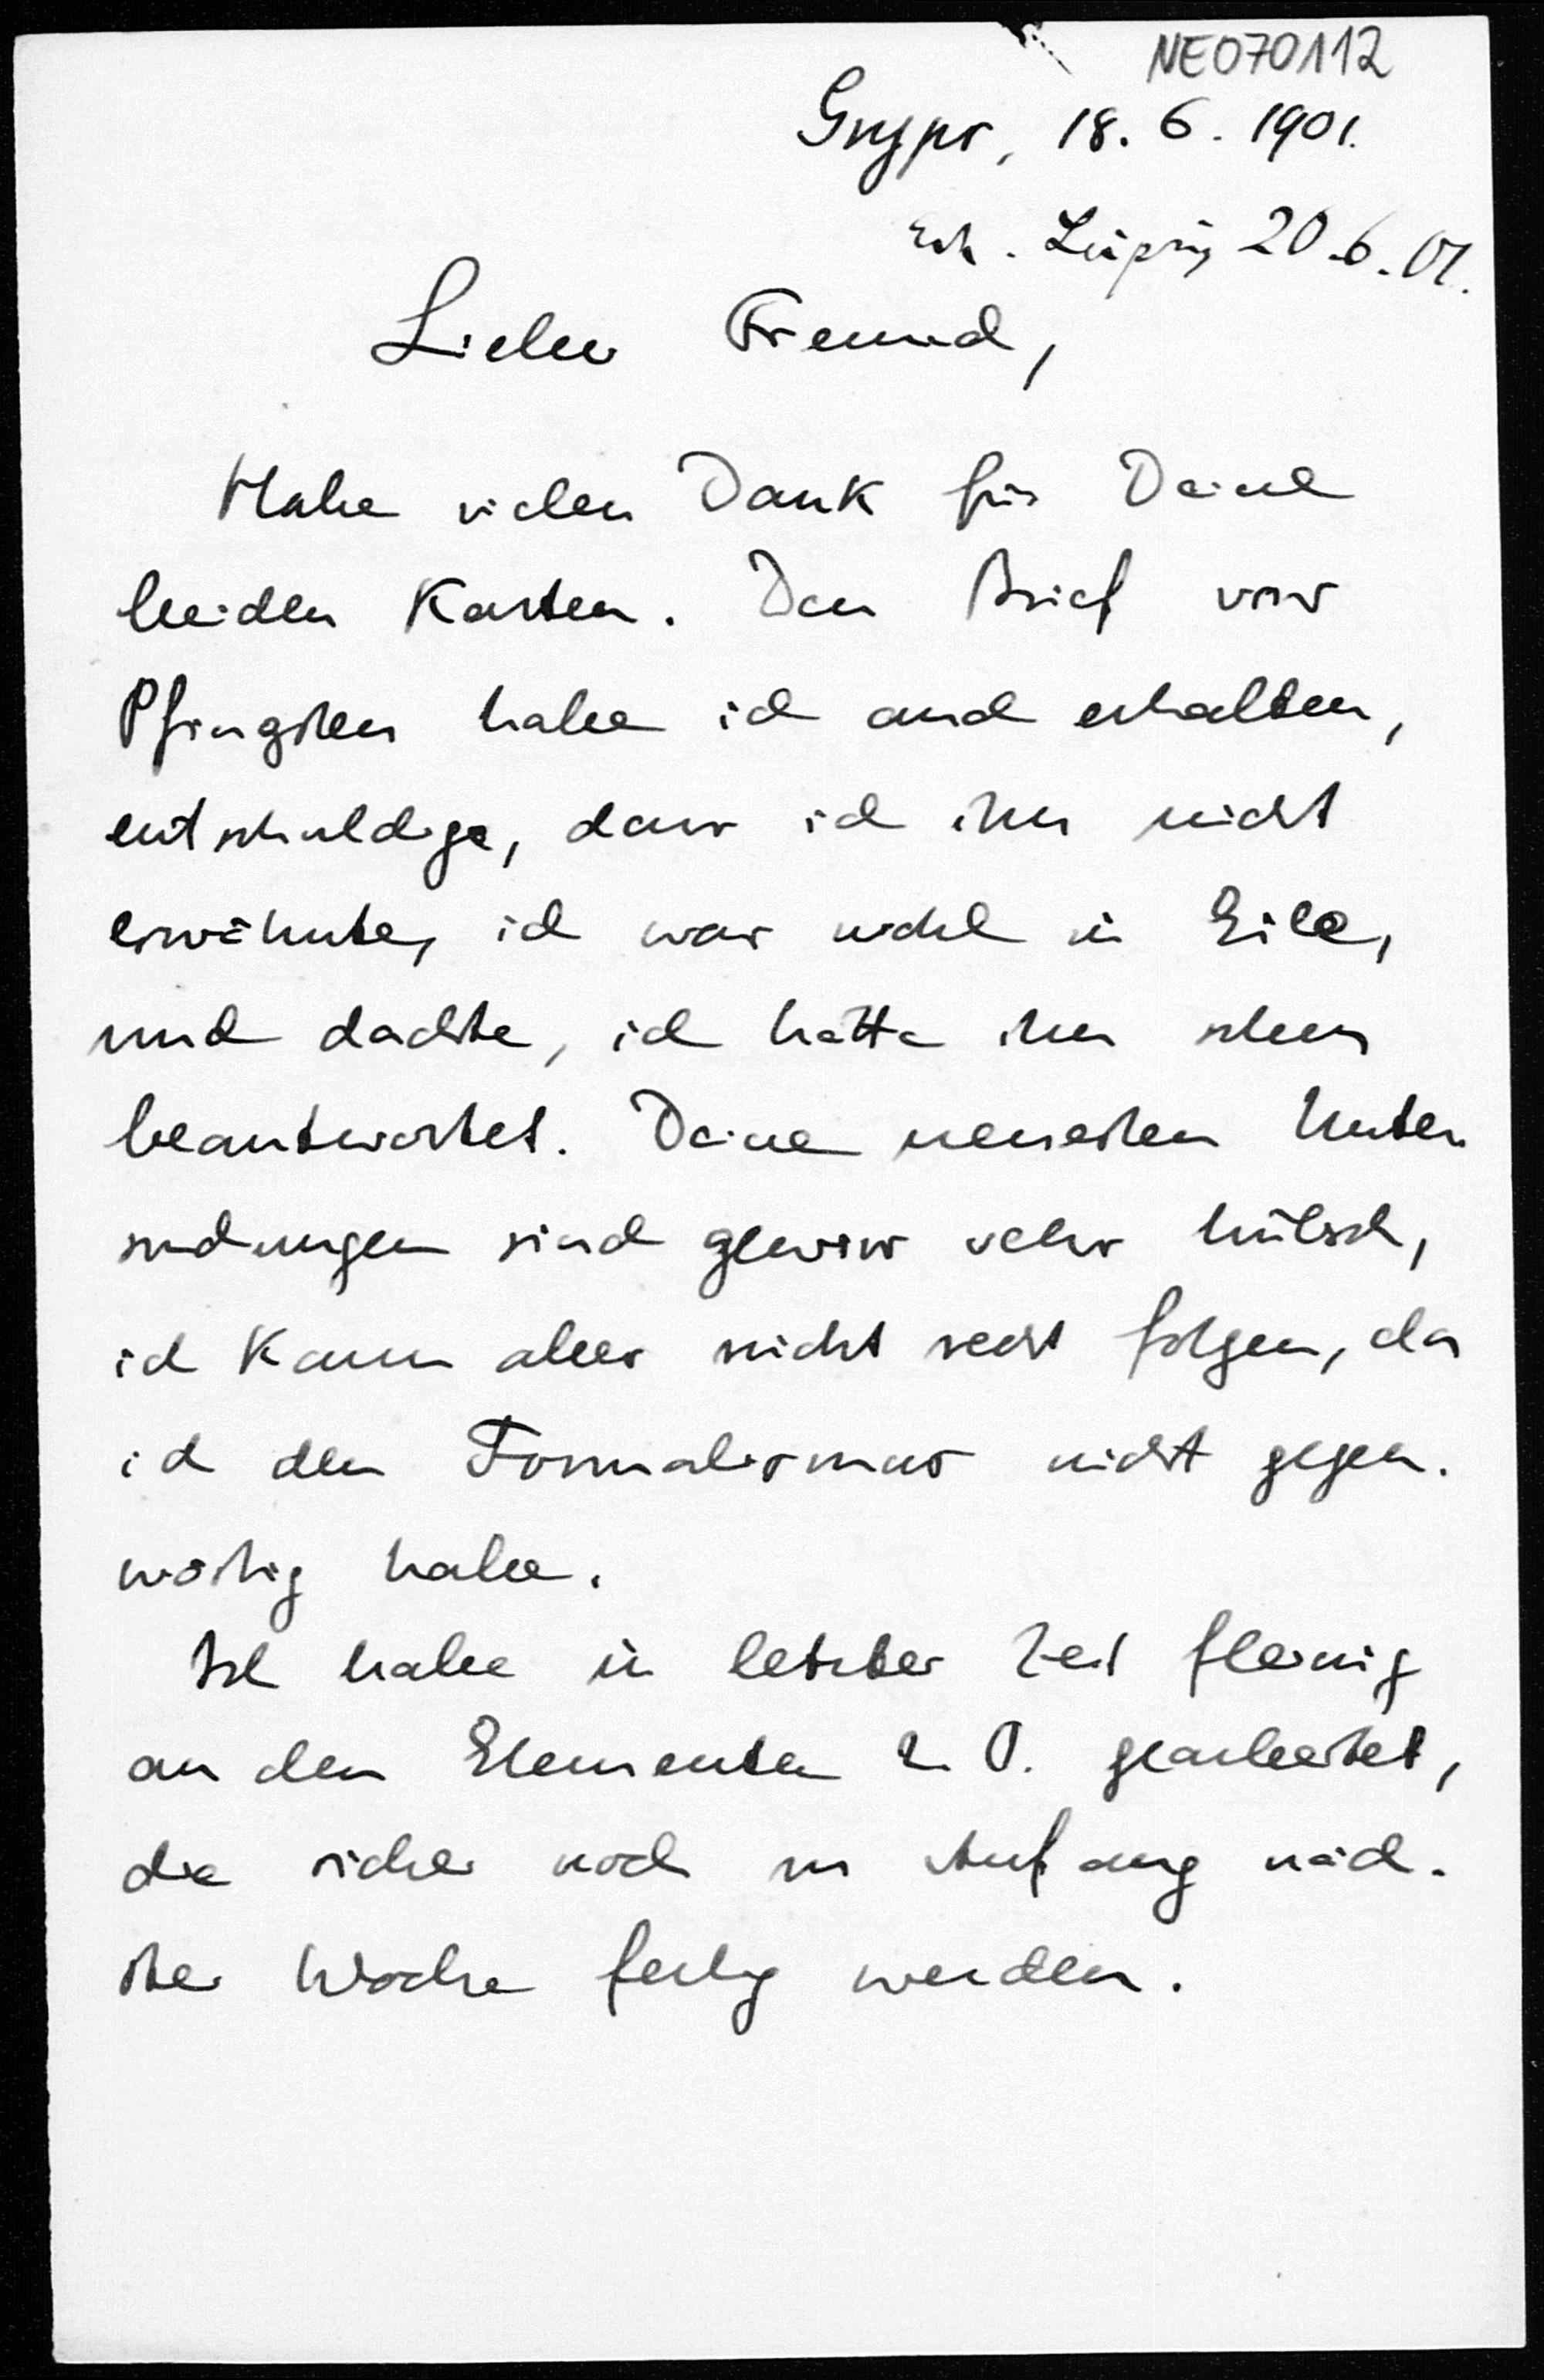 NE070112
Gryps, 18. 6. 1901.
Erh. Leipzig 20.6.01.
Lieber Freund,
Habe vielen Dank für Deine
beiden Karten. Den Brief vor
Pfingsten habe ich auch erhalten,
entschuldige, dass ich ihn nicht
erwähnte, ich war wohl in Eile,
und dachte, ich hätte ihn schon
beantwortet. Deine neuesten Unter
suchungen sind gewiss sehr hübsch,
ich kann aber nicht recht folgen, da
ich den Formalismus nicht gegen-
wärtig habe.
Ich habe in letzter Zeit fleissig
an den Elementen 2. O. gearbeitet,
die sicher noch im Anfang näch-
ster Woche fertig werden.